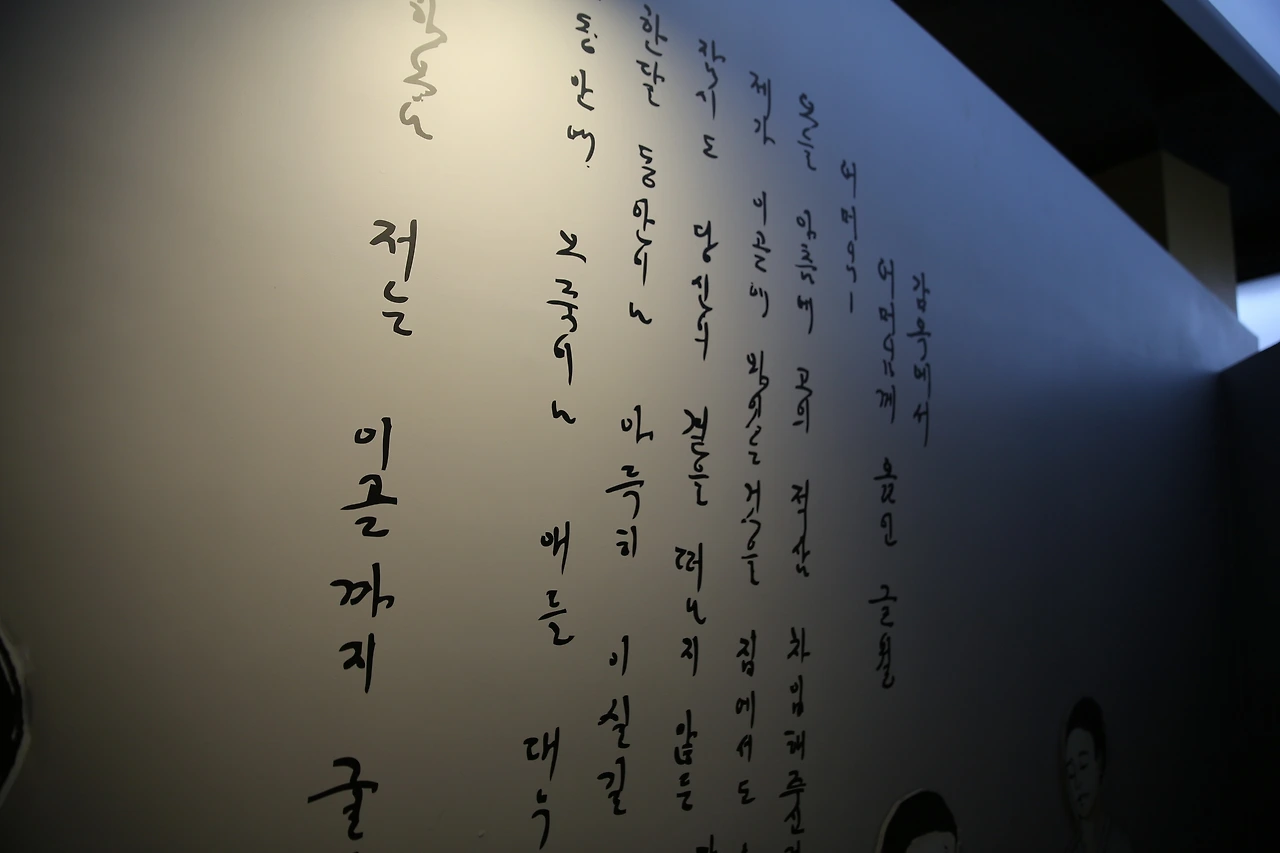 감옥에서
어머님께 올린 글월
어머님!
오늘 아침에 고의 적삼 차입해주신
제가 이곳에 와있는것을 집에서도
잠시도 당신의 곁을 떠나지 않는
한달 동안이나 아득히 아실길
동안에 오죽이나 애를 태우
저는 이곳까지 굴